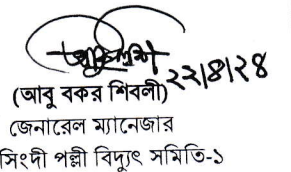 ২২/৪/২৪
(আবু বকর শিবলী)
জেনারেল ম্যানেজার
সিংদী পল্লী বিদ্যুৎ সমিতি-১